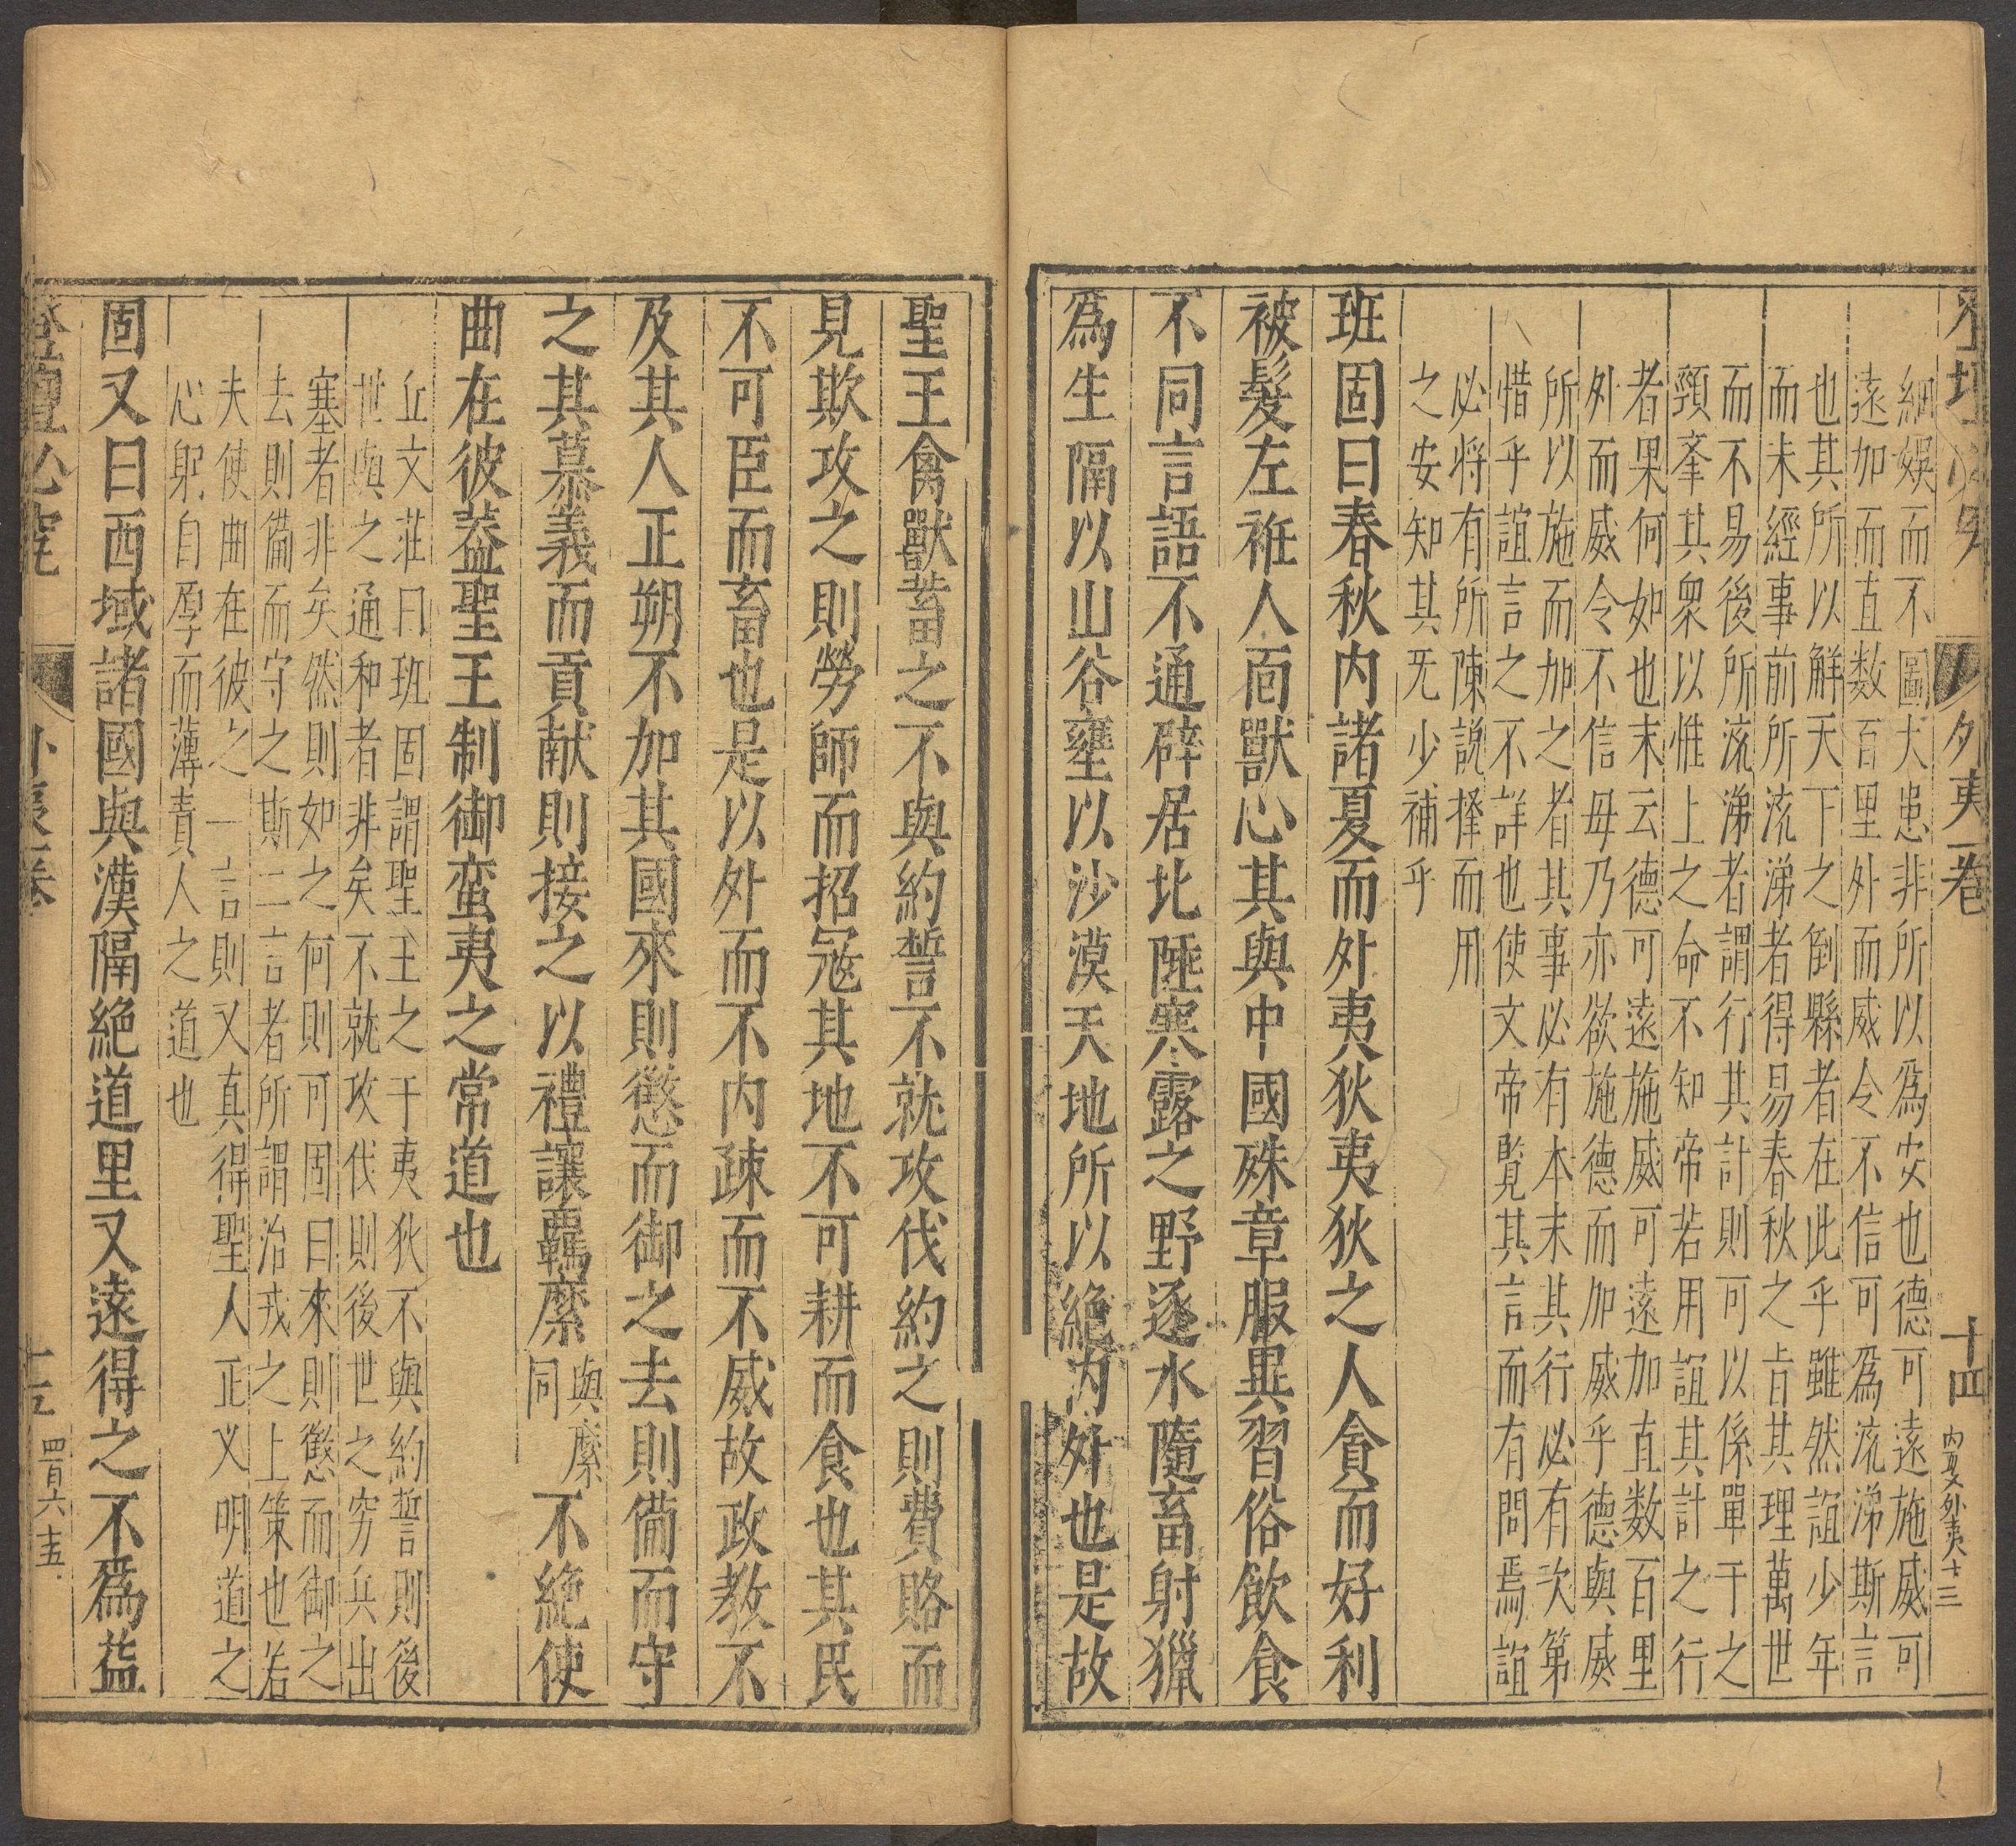 外夷一卷
十四
内夏外夷十三
細娛而不圖大患非所以爲安也德可遠施威可
遠加而直数百里外而威令不信可爲流涕斯言
也其所以解天下之倒縣者在此乎雖然誼少年
而未經事前所流涕者得易春秋之㫖其理萬世
而不易後所流涕者謂行其計則可以係單于之
頸夆其衆以惟上之命不知帝若用誼其計之行
者果何如也末云德可遠施威可遠加直数百里
外而威令不信毋乃亦欲施德而加威乎德與威
所以施而加之者其事必有本末其行必有次第
惜乎誼言之不詳也使文帝覧其言而有問焉誼
必将有所陳説擇而用
之安知其旡少補乎
班固曰春秋内諸夏而外夷狄夷狄之人貪而好利
被髮左衽人面獸心其與中國殊章服異習俗飲食
不同言語不通辟居北陲寒露之野逐水隨畜射獵
爲生隔以山谷壅以沙漠天地所以絶内外也是故
聖王禽獸畜之不與約誓不就攻伐約之則費賂而
見欺攻之則勞師而招冦其地不可耕而食也其民
不可臣而畜也是以外而不内疎而不威故政教不
及其人正朔不加其國來則懲而御之去則備而守
之其慕義而貢献則接之以禮讓羈縻與縻同不絶使
曲在彼葢聖王制御蛮夷之常道也
丘文莊曰班固謂聖王之于夷狄不與約誓則後
世與之通和者非矣不就攻伐則後世之穷兵出
塞者非矣然則如之何則可固曰來則懲而御之
去則備而守之斯二言者所謂治戎之上策也若
夫使曲在彼之一言則又真得聖人正义明道之
心躬自厚而薄責人之道也
固又曰西域諸國與漢隔絶道里又遠得之不爲益
登壇必究
外夷一卷
十五
四百六十五